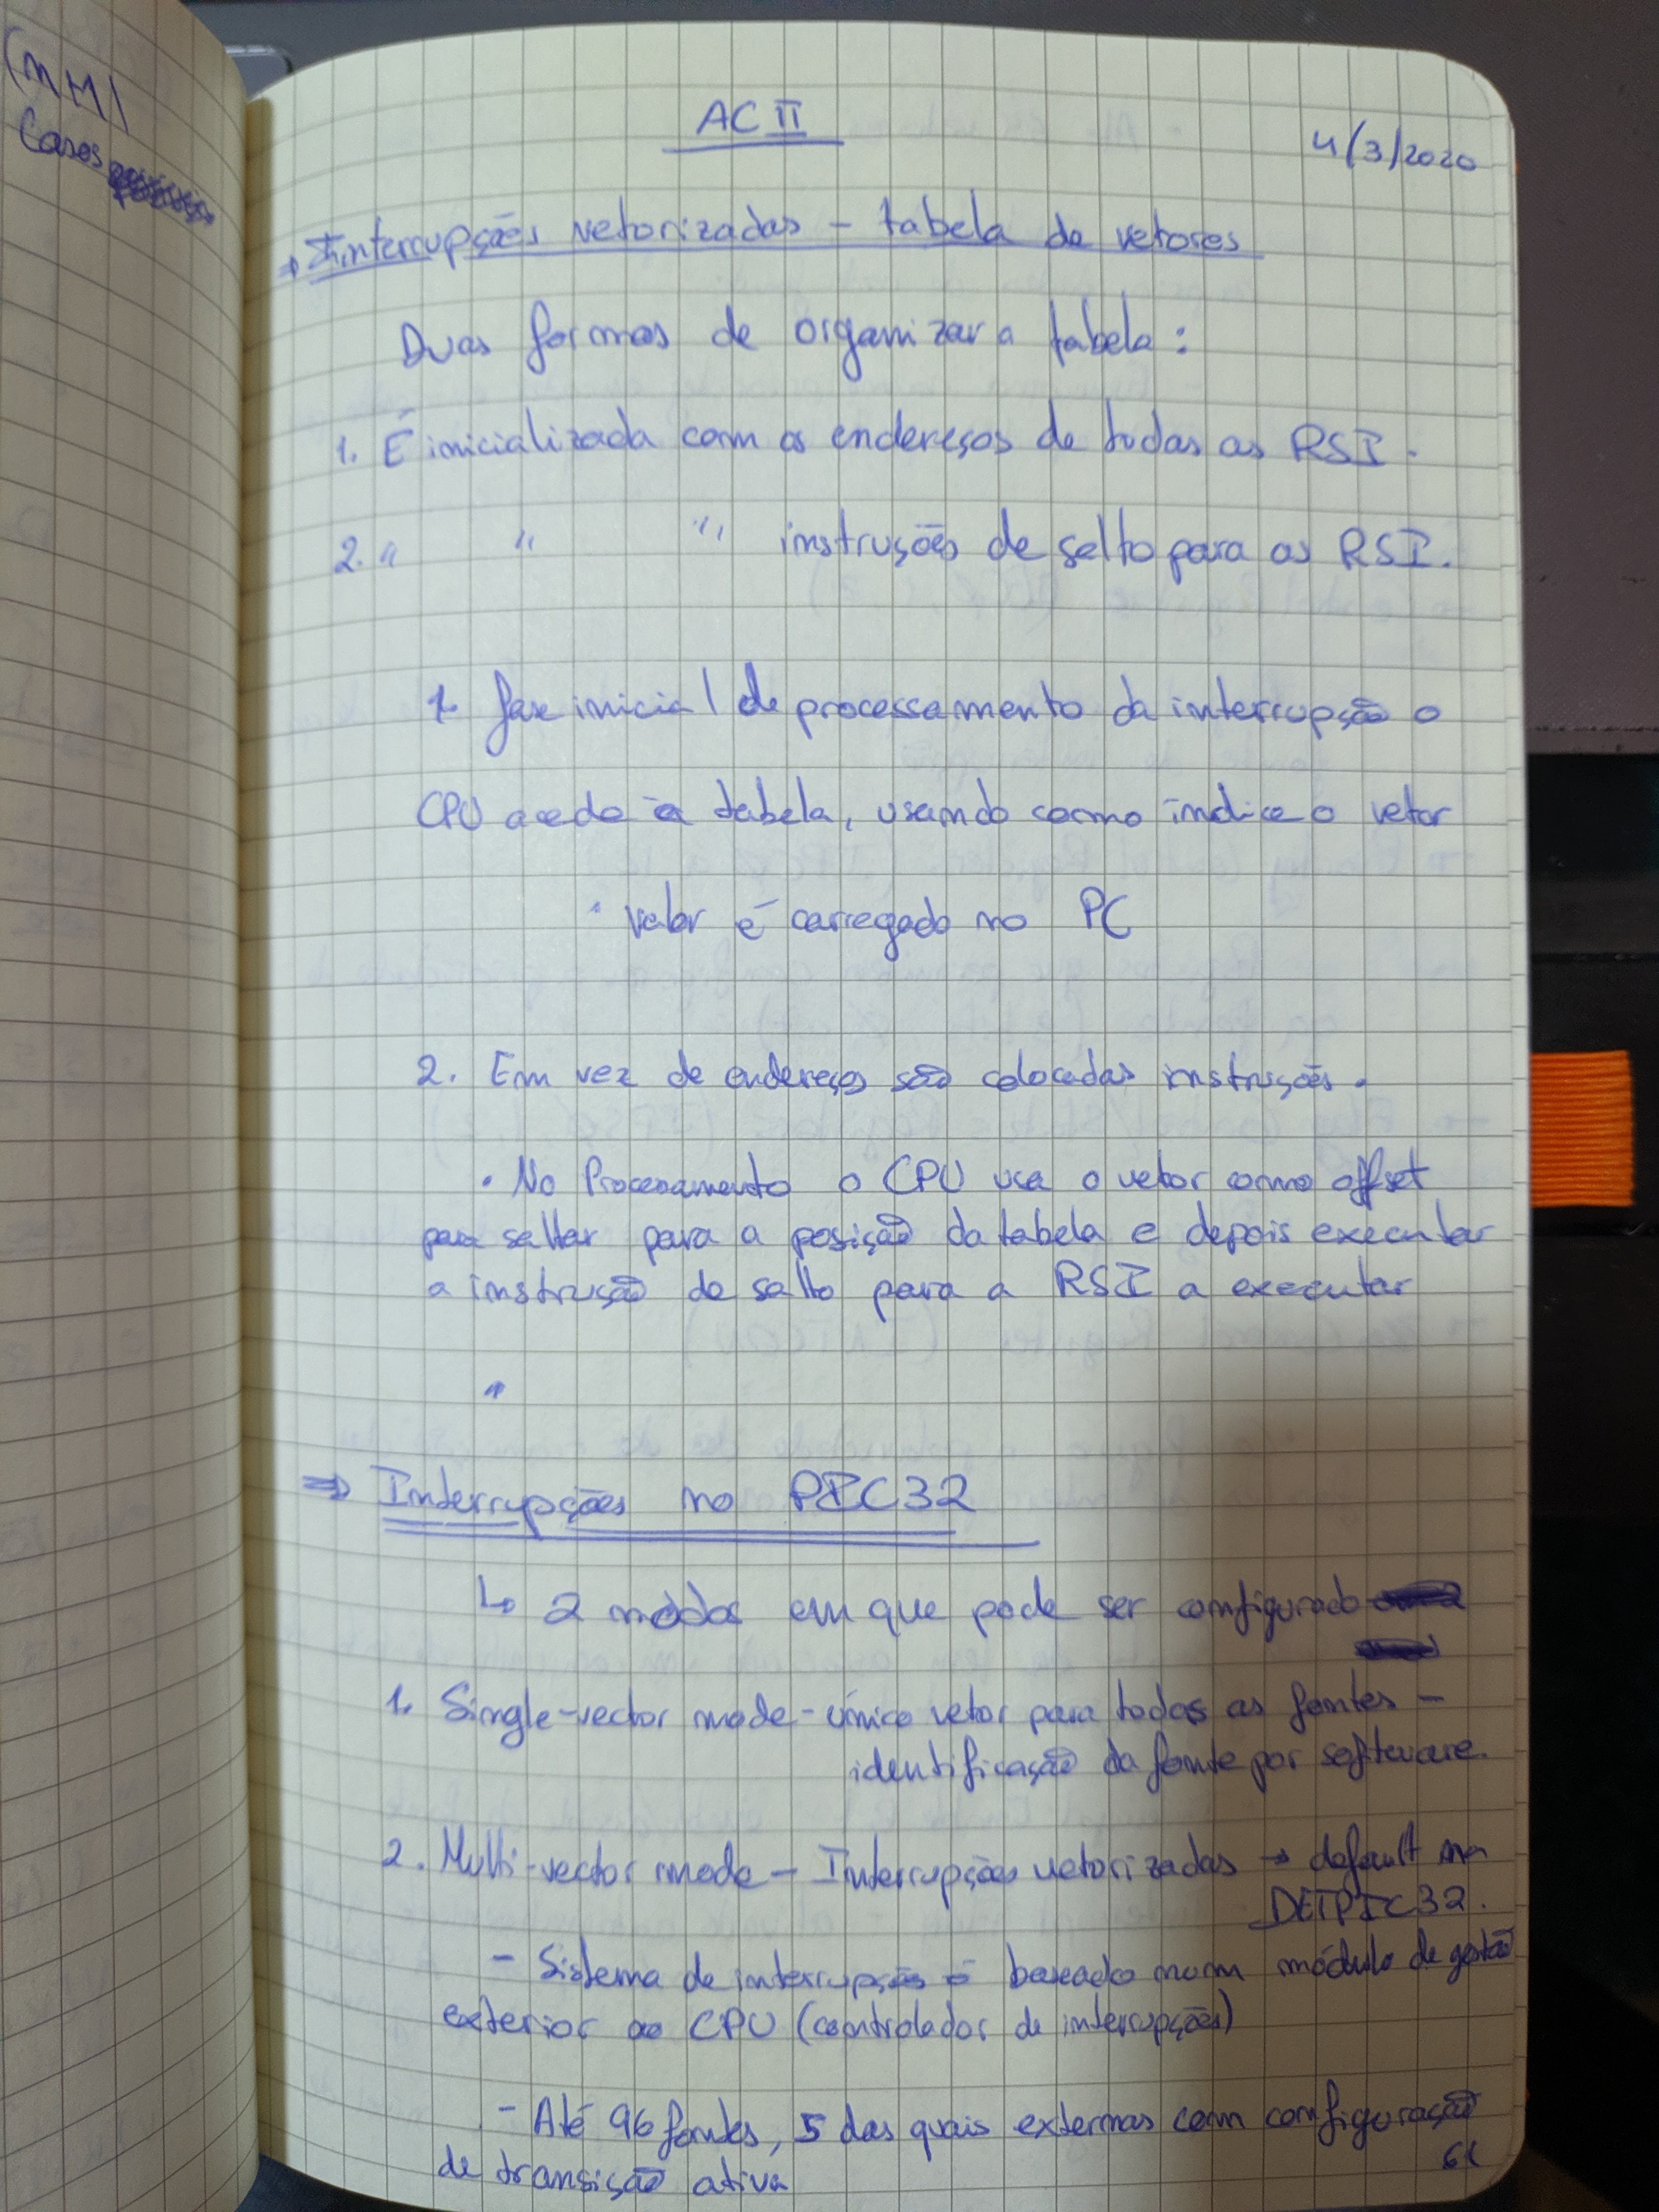 (MM)
Casos
AC II
4/3/2020
→ Interrupções vetorizadas - tabela de vetores
Duas formas de organizar a tabela:
1. É inicializada com os endereços de todas as RSI.
2. " " " instruções de salto para as RSI.
1. fase inicial de processamento da interrupção o
CPU acede à tabela, usando como índice o vetor
· valor é carregado no PC
2. Em vez de endereços são colocadas instruções.
• No Processamento o CPU usa o vetor como offset
para saltar para a posição da tabela e depois executar
a instrução de salto para a RSI a executar
"
⇒ Interrupções no PIC32
↳ 2 modos em que pode ser configurado
1. Single-vector mode - único vetor para todas as fontes -
identificação da fonte por software.
2. Multi-vector mode - Interrupções vetorizadas → default na
DETPIC32.
- Sistema de interrupções é baseado num módulo de gestão
exterior ao CPU (controlador de interrupções)
- Até 96 fontes, 5 das quais externas com configuração
de transição ativa
61